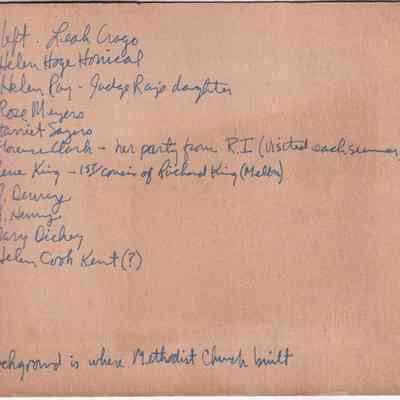 left. Leah Crago
Helen Hoge Honical
Helen Ray - Judge Ray's daughter
Rose Meyers
Harriet Sayers
Florence Clark - her party from R.I (visited each summer)
Irene King - 1st cousin of Richard King (Mellon)
Mary Dickey
Helen Cook Kent (?)
background is where Methodist Church built